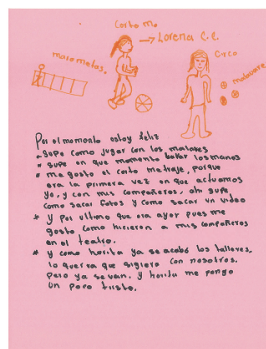 Corto m.
→ Lorena C. C.
maromotas.
Circo
malabare
Por el momento estoy feliz
* supe como jugar con los
* supe en que momento botar las manos
* me gusto el corto metraje, porque
era la primera vez en que actuamos
yo, y con mis compañeros, oh supe,
como sacar fotos y como sacar un video
* y Por ultimo que era ayer pues me
gusto como hicieron a mis compañeros
en el teatro.
* y como horita ya se acabó los talleres,
lo querria que sigiera con nosotros.
Pero ya se van. y horita me pongo
un poco triste.